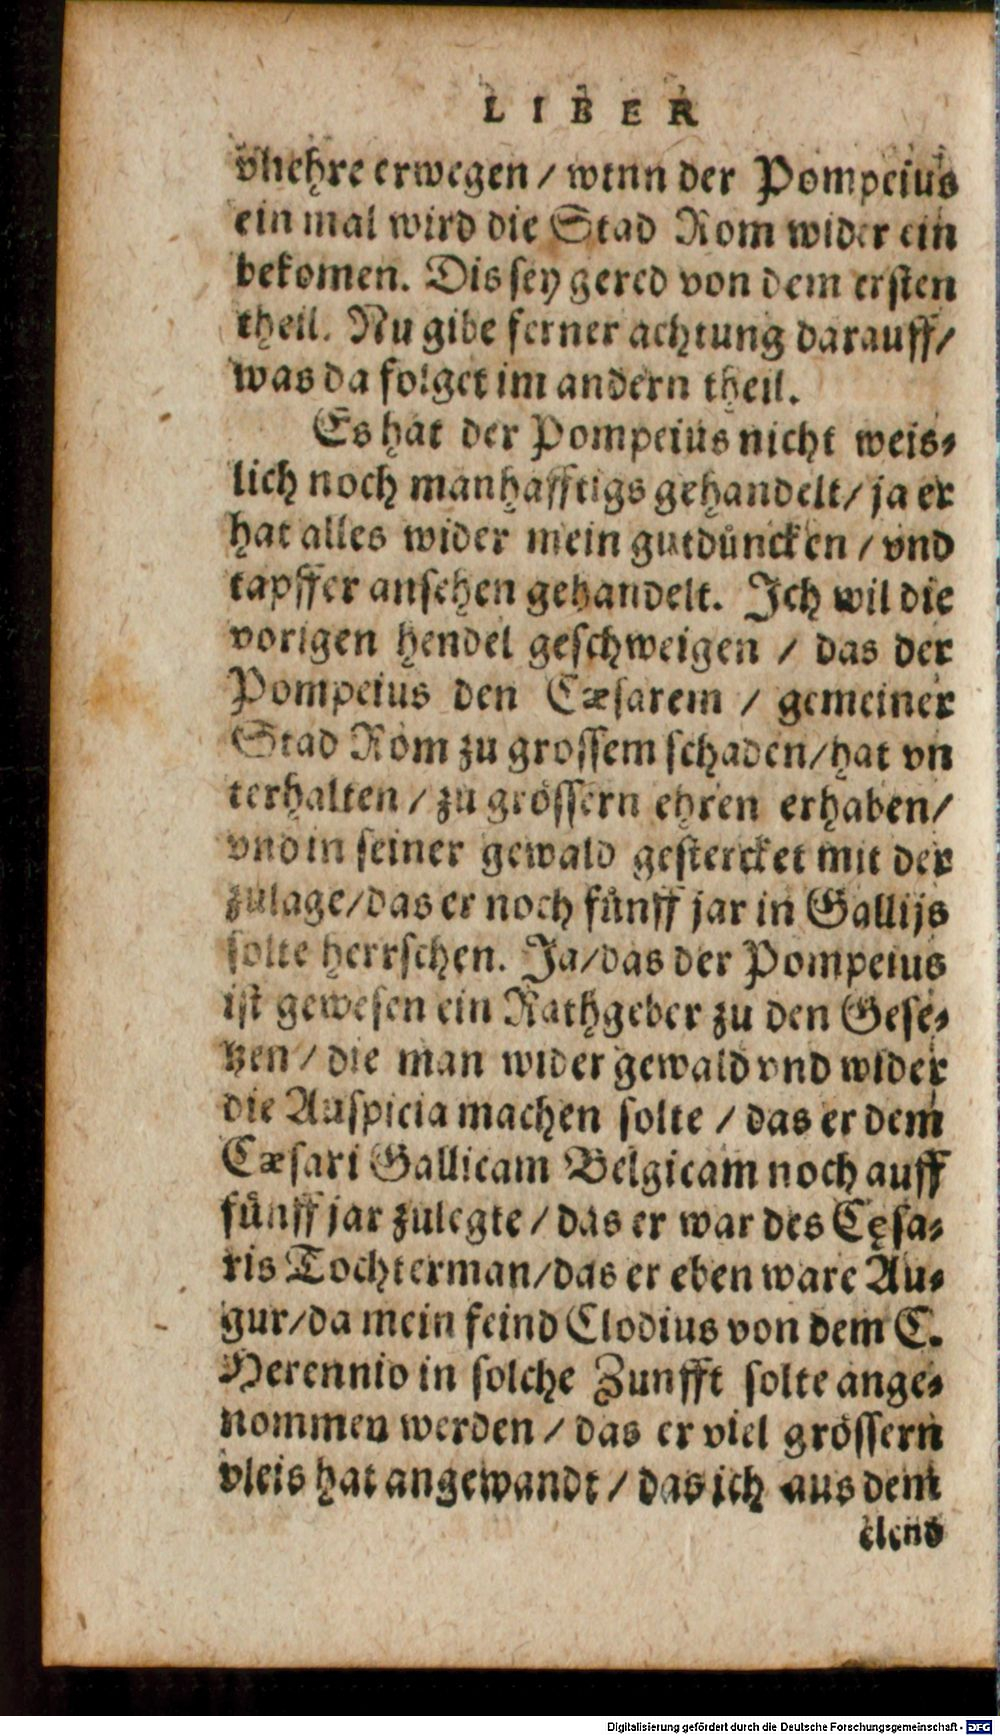 LIBER
vnehre erwegen / wenn der Pompeius
ein mal wird die Stad Rom wider ein
bekomen. Dis sey gered von dem ersten
theil. Nu gibe ferner achtung darauff/
was da folget im andern theil.
Es hat der Pompeius nicht weis⸗
lich noch manhafftigs gehandelt/ ja er
hat alles wider mein gutdůncken / vnd
tapffer ansehen gehandelt. Ich wil die
vorigen hendel geschweigen / das der
Pompeius den Cæsarem / gemeiner
Stad Rom zu grossem schaden/hat vn
terhalten / zu grössern ehren erhaben/
vnd in seiner gewald gestercket mit der
zulage/das er noch fůnff jar in Gallijs
solte herrschen. Ja/das der Pompeius
ist gewesen ein Rathgeber zu den Gese⸗
tzen / die man wider gewald vnd wider
die Auspicia machen solte / das er dem
Cæsari Gallicam Belgicam noch auff
fůnff jar zulegte / das er war des Cęsa⸗
ris Tochterman/das er eben ware Au⸗
gur/da mein feind Clodius von dem C.
Herennio in solche Zunfft solte ange⸗
nommen werden / das er viel grössern
vleis hat angewandt / das ich aus dem
elend
Digitalisierung gefördert durch die Deutsche Forschungsgemeinschaft - DFG